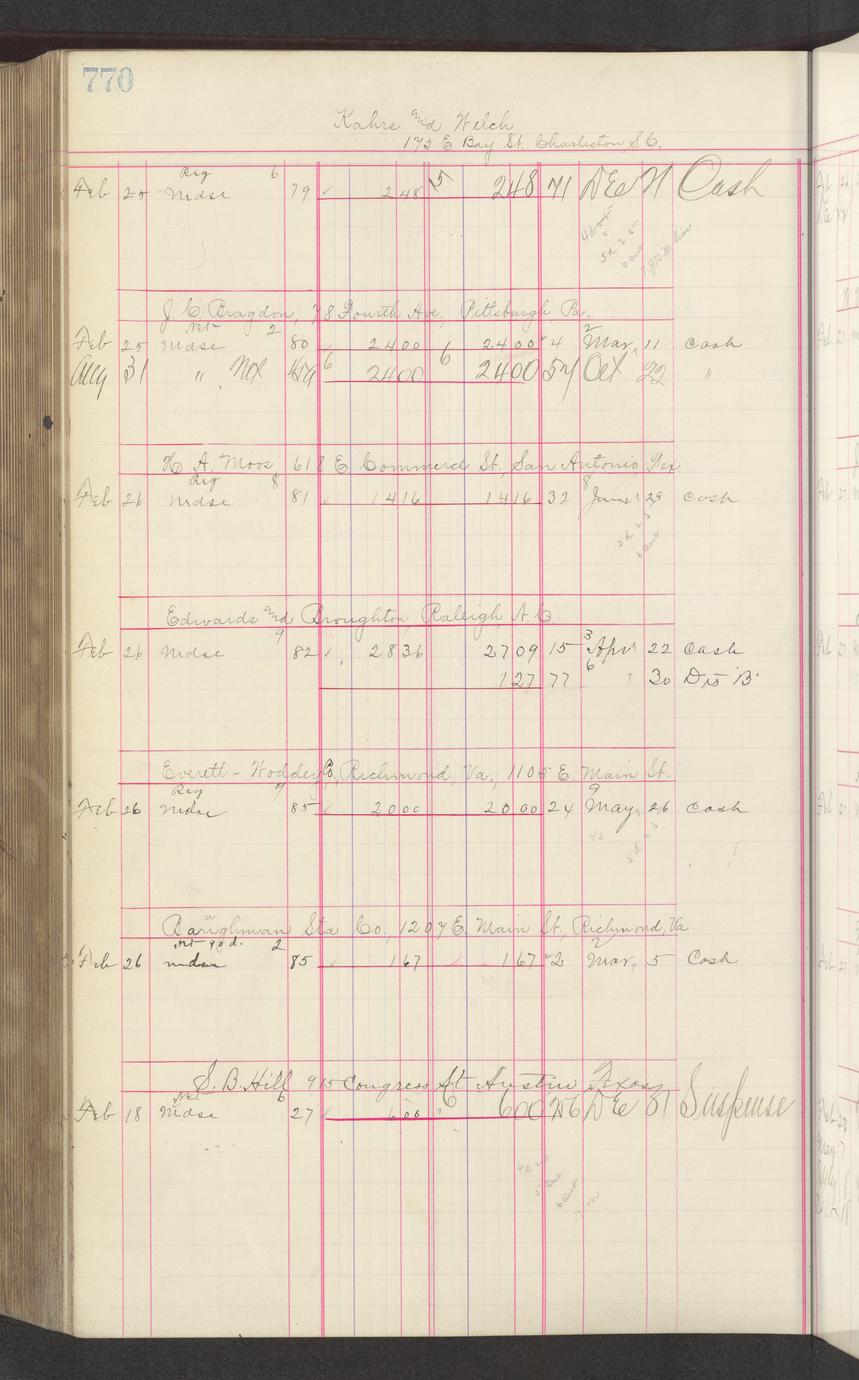 770
Kahrs and Welch
172 E Bay St. Charleston, S.C.
Reg 6
Feb 25 Mdse 79 2 48 15 248 71 DEC 21 Cash
J. C. Bragdon, 78 Fourth Ave, Pittsburgh, Pa.
Net 2 2
Feb 25 Mdse 80 24 00 24 00 4 Mar 11 Cash
Aug 31 " Net 6 2400 6 2400 54 Oct 22 "
H. A. Moos, 618 E Commerce St, San Antonio, Tex
Reg 8 8
Feb 26 Mdse 81 14 16 14 16 32 June 29 Cash
Edwards and Broughton, Raleigh, N.C.
9 3
Feb 26 Mdse 82 28 36 27 09 15 Apr 22 Cash
6
1 27 77 " 30 Dis 'B'
Everett-Waddey Co, Richmond, Va, 1105 E. Main St.
Reg 9 9
Feb 26 Mdse 85 20 00 20 00 24 May 26 Cash
Baughman Sta Co., 1207 E. Main St., Richmond, Va.
Net 90 d. 2 2
Feb 26 Mdse 85 1 67 1 67 2 Mar 5 Cash
S. B. Hill 915 Congress St Austin Texas
Net 6 6
Feb 18 Mdse 27 6 00 600 256 DEC 31 Suspense